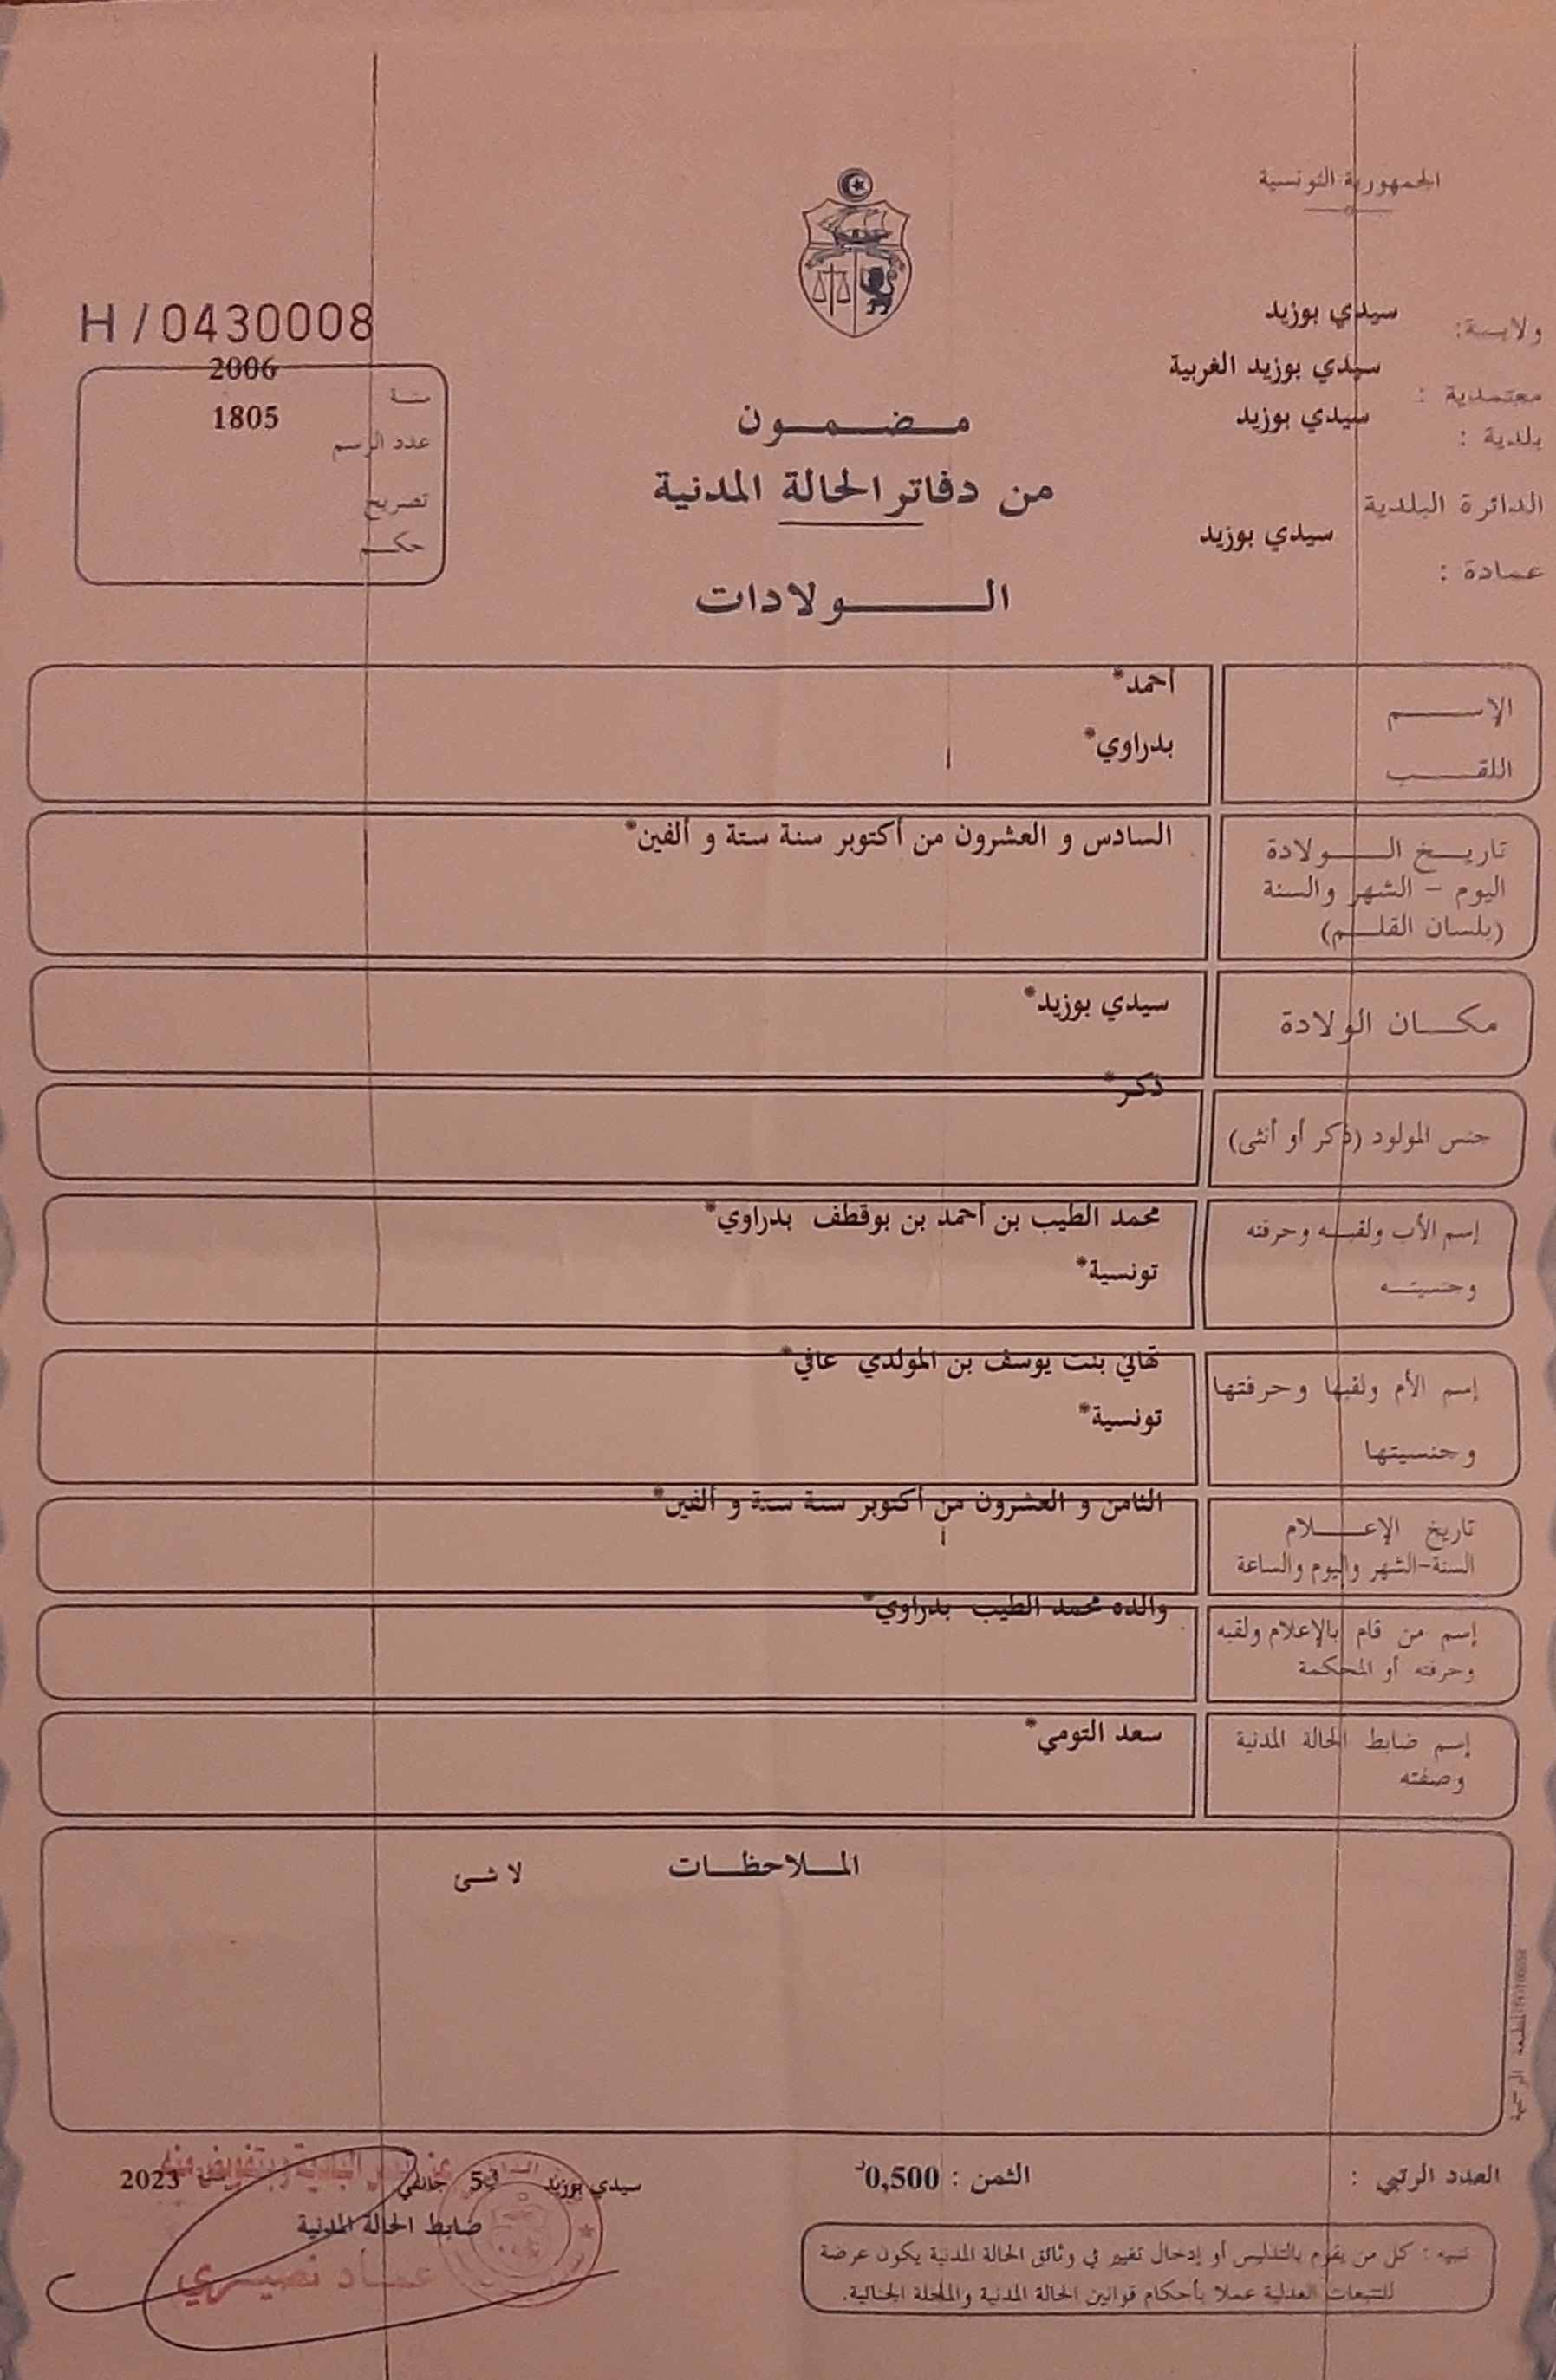 الجمهورية التونسية
ولاية: سيدي بوزيد
معتمدية : سيدي بوزيد الغربية
بلدية : سيدي بوزيد
الدائرة البلدية
سيدي بوزيد
عمادة :
H/0430008
سنة 2006
عدد الرسم 1805
تصريح
حكم
مضمون
من دفاتر الحالة المدنية
الولادات
الإسم أحمد*
اللقب بدراوي*
تاريخ الولادة السادس و العشرون من أكتوبر سنة ستة و ألفين*
اليوم - الشهر والسنة
(بلسان القلم)
مكان الولادة سيدي بوزيد*
جنس المولود (ذكر أو أنثى) ذكر*
إسم الأب ولقبه وحرفته محمد الطيب بن أحمد بن بوقطف بدراوي*
وجنسيته تونسية*
إسم الأم ولقبها وحرفتها تهاني بنت يوسف بن المولدي عافي*
وجنسيتها تونسية*
تاريخ الإعلام الثامن و العشرون من أكتوبر سنة ستة و ألفين*
السنة-الشهر واليوم والساعة
إسم من قام بالإعلام ولقبه والده محمد الطيب بدراوي*
وحرفته أو المحكمة
إسم ضابط الحالة المدنية سعد التومي*
وصفته
الملاحظات لا شئ
المطبعة الرسمية
العدد الرتبي :
الثمن : 0,500د
تنبيه : كل من يقوم بالتدليس أو إدخال تغيير في وثائق الحالة المدنية يكون عرضة
للتتبعات العدلية عملا بأحكام قوانين الحالة المدنية والمجلة الجنائية.
سيدي بوزيد جانفي 2023
ضابط الحالة المدنية
عماد نصيري